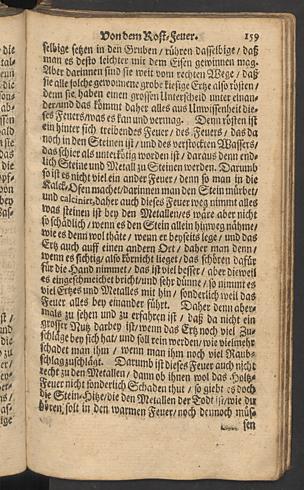 Von dem Rost-Feuer. 159
selbige setzen in den Gruben / rühren dasselbige / daß
man es desto leichter mir dem Eisen gewinnen mag.
Aber darinnen sind sie weit vom rechten Wege / daß
sie alle solche gewonnene grobe kiesige Ertze also rösten /
denn sie haben einen grossen Unterscheid unter einan-
der / und das kömmt daher alles aus Unwissenheit die-
ses Feuers / was es kan und vermag. Denn rösten ist
ein hinter sich treibendes Feuer / des Feuers / das da
noch in den Steinen ist / und des verstockten Wassers /
das schier als unterkötig worden ist / daraus denn end-
lich Steine und Metall zu Steinen werden. Darumb
so ist es nicht viel ein ander Feuer / denn so man in die
Kalck-Ofen machet / darinnen man den Stein mürbet
und calciniret, daher auch dieses Feuer weg nimmt alles
was steinen ist bey den Metallen / es wäre aber nicht
so schädlich / wenn es den Stein allein hinweg nähme /
wie es denn wol thäte / wenn er beyseits lege / und das
Ertz auch auff einen andern Ort / daher man denn /
wenn es sichtig / also körnicht lieget / das schören dafür
für die Hand nimmet / das ist viel besser / aber dieweil
es eingeschmeichet bricht / und sehr dünne / so nimmt es
viel Ertzes und Metalles mit hin / sonderlich weil das
Feuer alles bey einander führt. Daher denn aber-
mals zu sehen und zu erfahren ist / daß da nicht ein
grosser Nutz darbey ist / wenn das Ertz noch viel Zu-
schläge bey sich hat / und soll rein werden / wie vielmehr
schadet man ihm / wenn man ihm noch viel Raub-
schlag zuschlägt. Darumb ist dieses Feuer auch nicht
recht zu den Metallen / dann ob ihnen wol das Holtz-
Feuer nicht sonderlich Schaden thut / so giebt es doch
die Stein-Hitze / die den Metallen der Todt ist / wie du
hören / solt in den warmen Feuer / noch dennoch müs-
sen